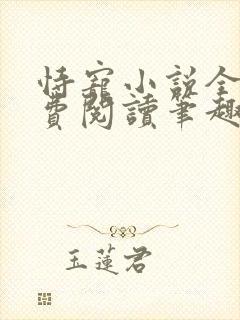 恃寵小說全
費閱讀筆趣
玉蓮君